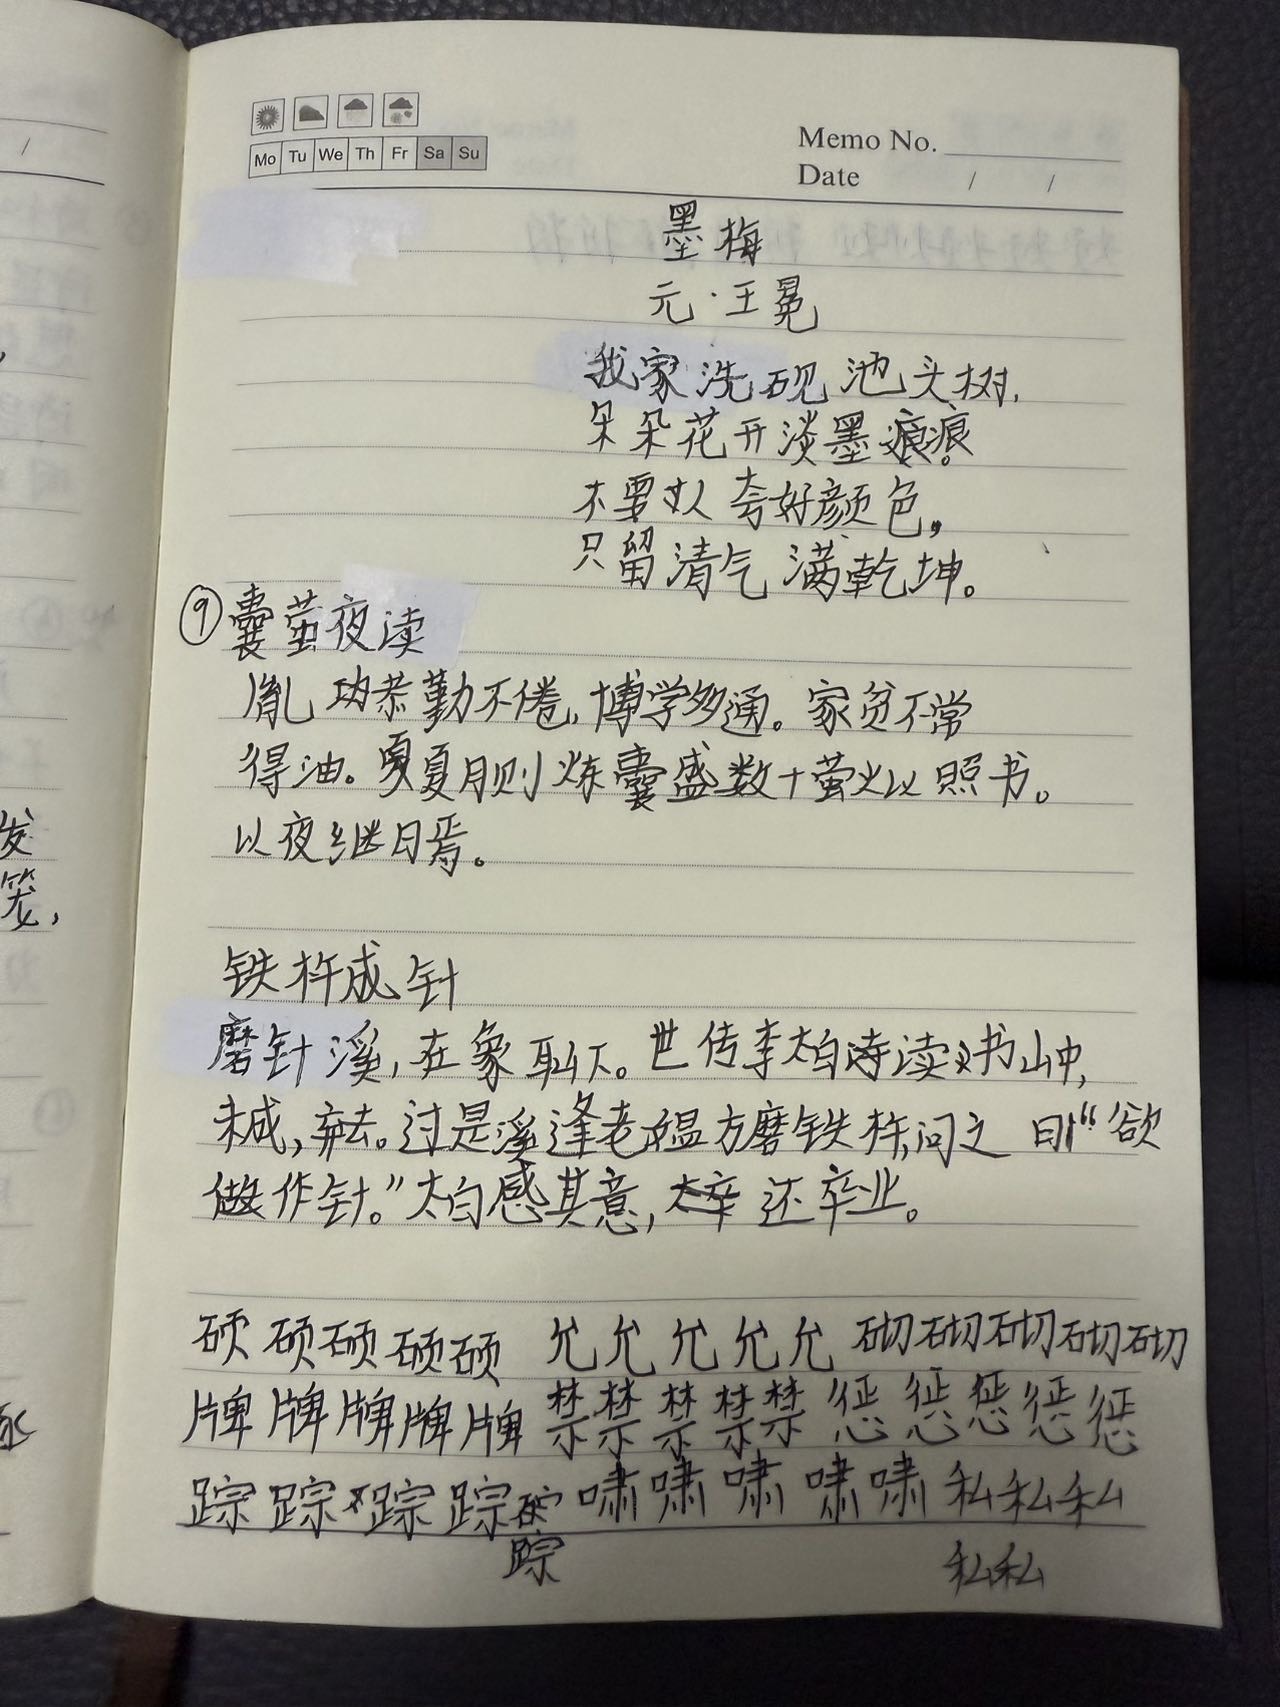 Mo Tu We Th Fr Sa Su
Memo No.
Date / /
墨梅
元·王冕
我家洗砚池头树,
朵朵花开淡墨痕痕。
不要人夸好颜色,
只留清气满乾坤。
⑨囊萤夜读
胤功恭勤不倦,博学多通。家贫不常
得油。夏夏月则炼囊盛数十萤火以照书。
以夜继日焉。
铁杵成针
磨针溪,在象耳山下。世传李太白诗读书山中,
未成,弃去。过是溪逢老媪方磨铁杵,问之 曰"欲
做作针。"太白感其意, 还卒业。
硕硕硕硕硕 允允允允允 砌砌砌砌砌
牌牌牌牌牌 禁禁禁禁禁 惩惩惩惩惩
踪踪踪踪 啸啸啸啸啸 私私私
踪 私私
发
笼,